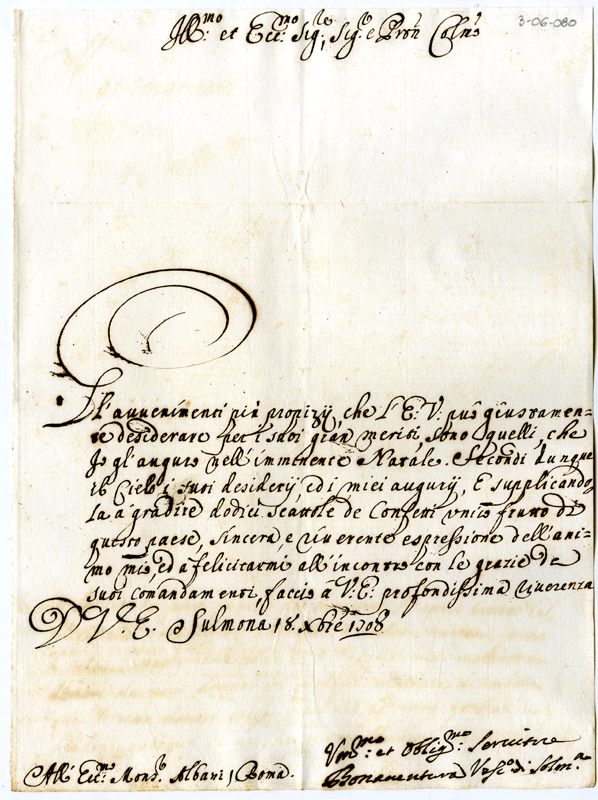 3-06-080
Ill.mo et Ecc.mo Sig.re, Sig.r e Pron Colmo
Gl'auuenimenti più propizij, che l'E: V: può giustamen-
te desiderare per i suoi gran meriti, sono quelli, che
Io gl'auguro nell'imminente Natale. Secondi dunque
il Cielo i suoi desiderij, ed i miei augurij, E supplicando
la à gradire dodici scattole de Confetti unico frutto di
questo paese, sincera, e riuerente espressione dell'ani-
mo mio, ed à felicitarmi all'incontro con le grazie de
suoi comandamenti, faccio à V: E: profondissima riuerenza
D V. E. Sulmona 18. Xbre 1708
Um.mo: et Oblig.mo: Seruitore
Bonauentura Vesc.o di Solm.a
All' Ecc.mo Mons.r Albani, Roma.